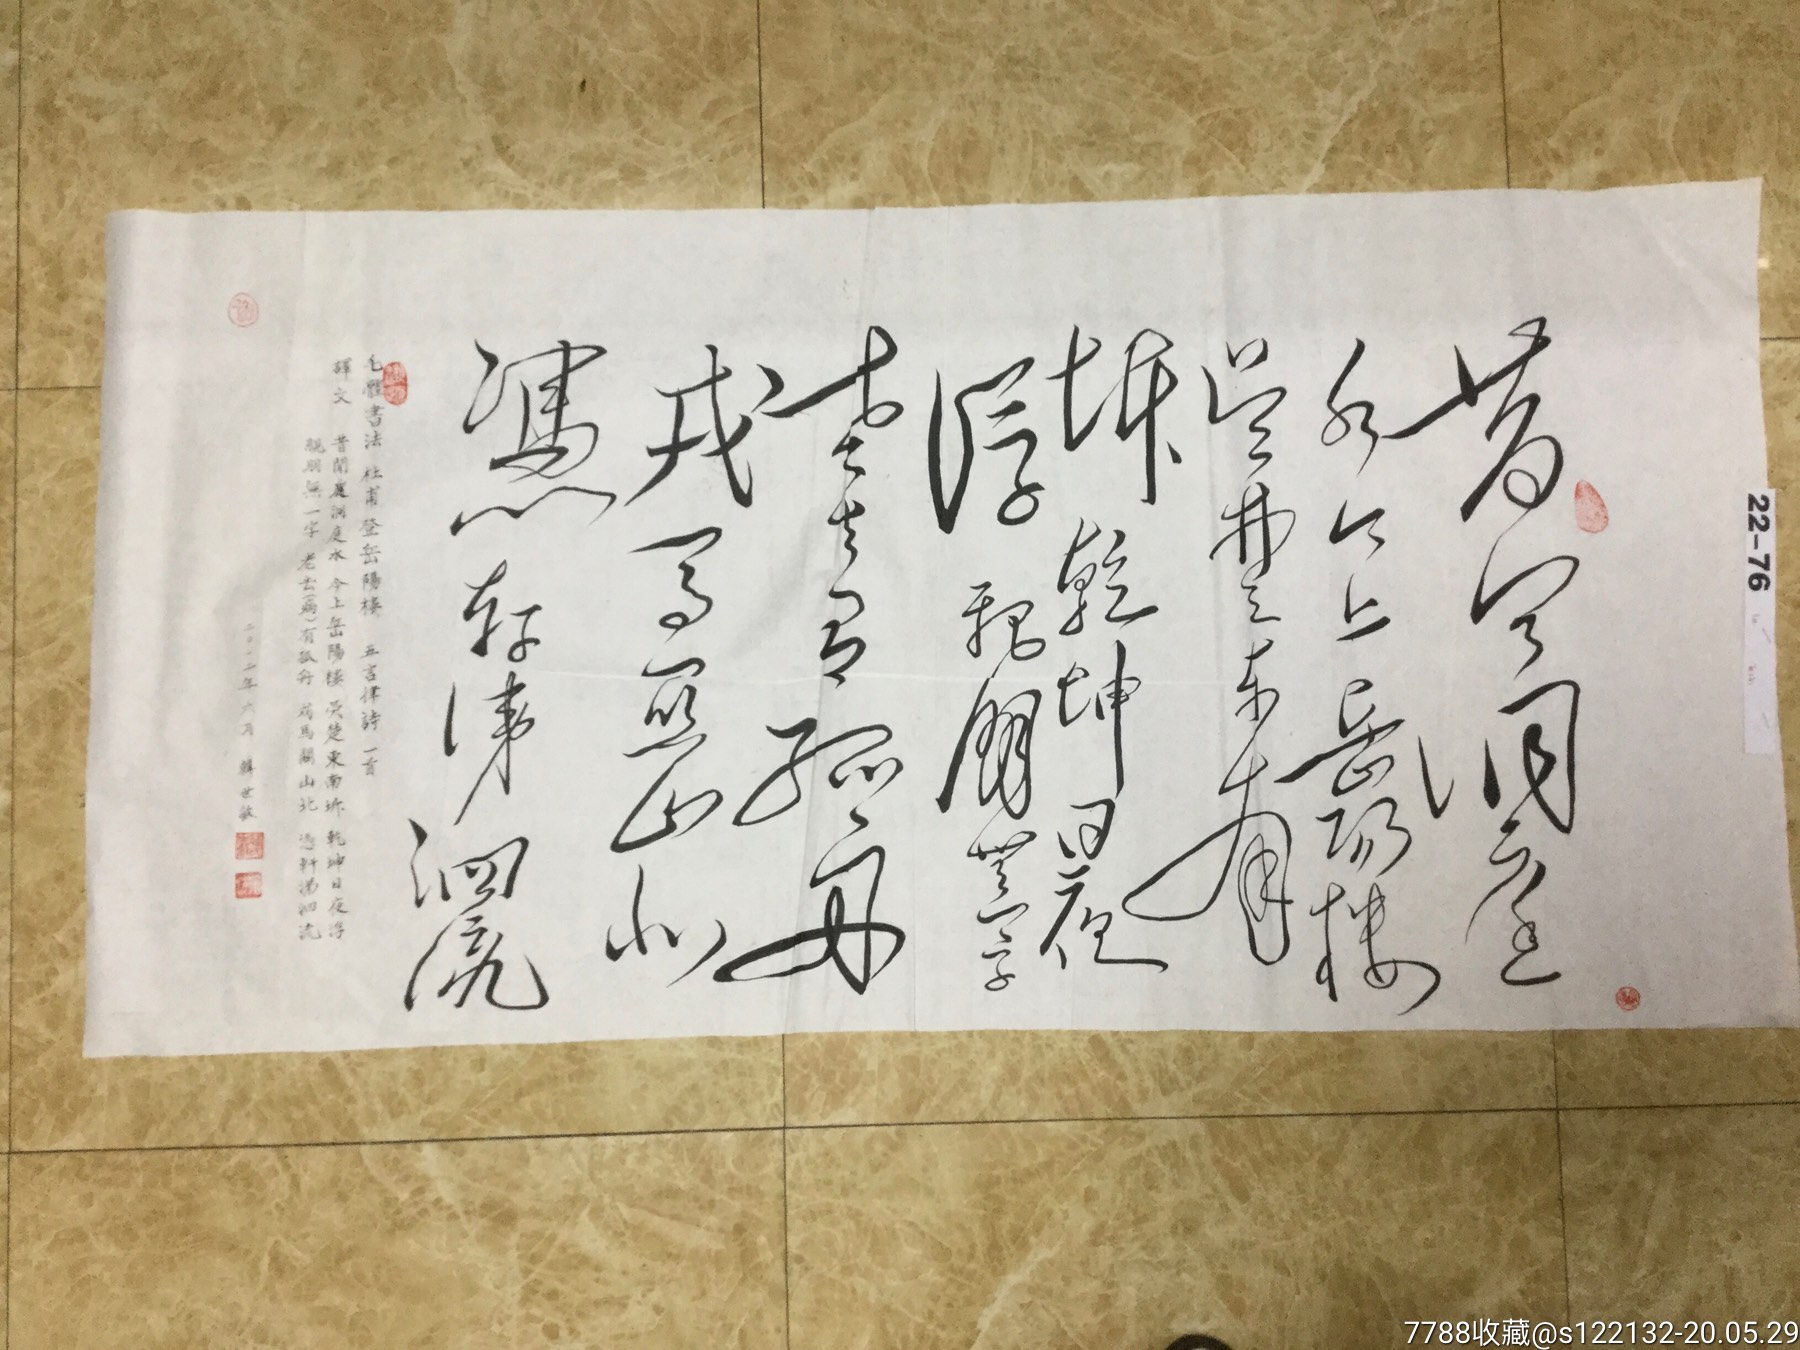 昔闻洞庭
水今上岳阳楼
吴楚东南
坼乾坤日夜
浮親朋無一字
老去有孤舟
戎马関山北
憑轩涕泗流
毛體書法 杜甫登岳陽樓 五言律詩一首
釋文 昔聞洞庭水 今上岳陽樓 吴楚東南坼 乾坤日夜浮
親朋無一字 老去(病)有孤舟 戎馬關山北 憑軒涕泗流
年六月 韓世敏
22-76
7788收藏@s122132-20.05.29